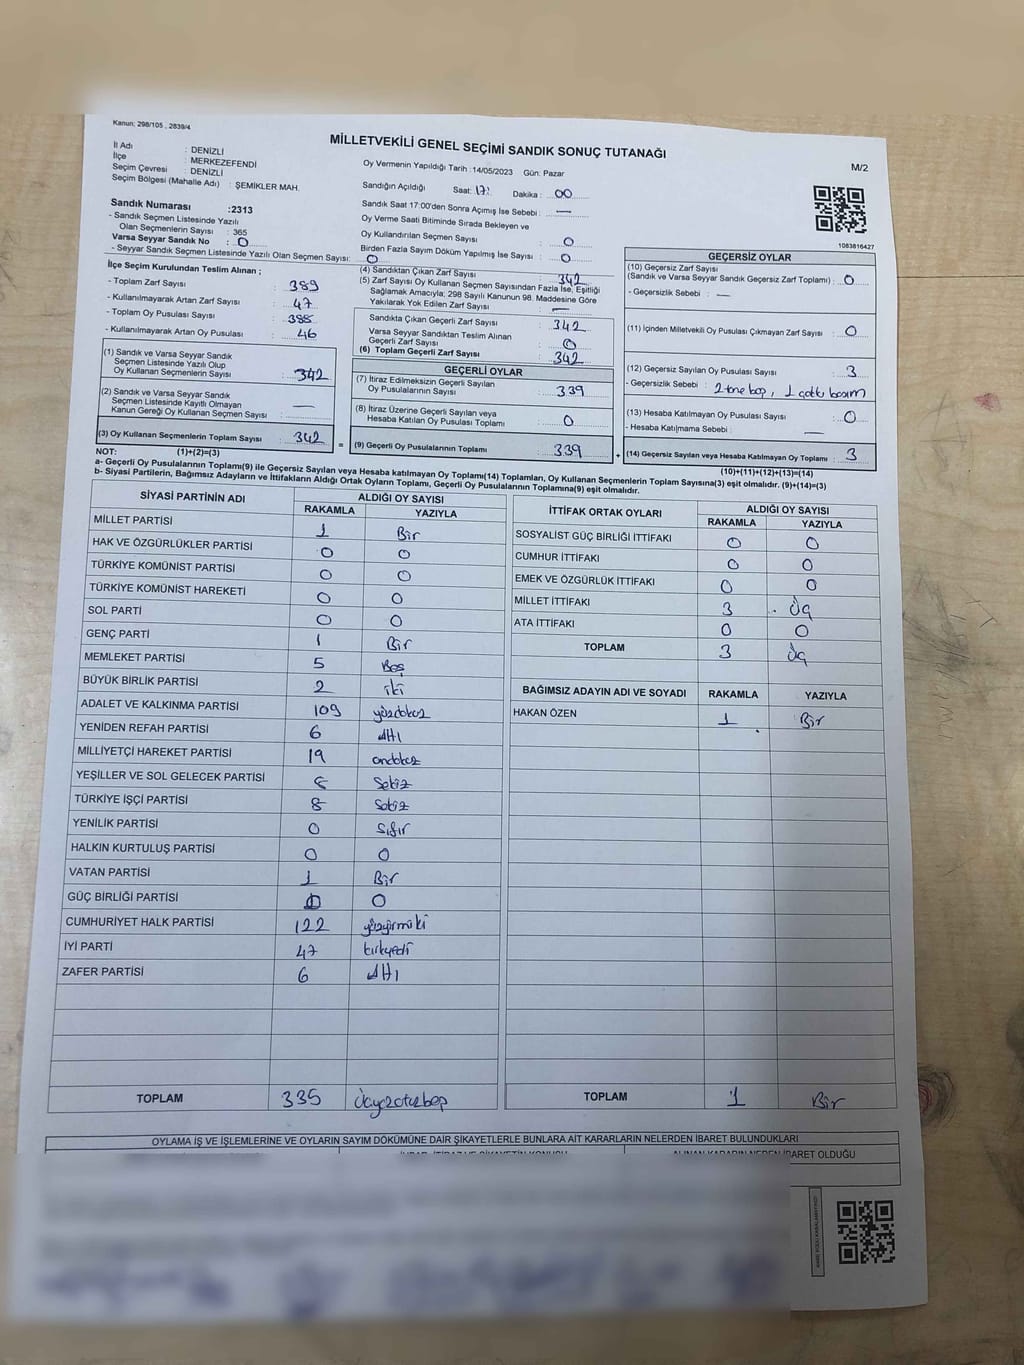 Kanun; 298/105 , 2839/4
MİLLETVEKİLİ GENEL SEÇİMİ SANDIK SONUÇ TUTANAĞI
M/2
İl Adı : DENİZLİ
İlçe : MERKEZEFENDİ
Seçim Çevresi : DENİZLİ
Seçim Bölgesi (Mahalle Adı) : ŞEMİKLER MAH.
Sandık Numarası :2313
- Sandık Seçmen Listesinde Yazılı
Olan Seçmenlerin Sayısı : 365
Varsa Seyyar Sandık No : 0
- Seyyar Sandık Seçmen Listesinde Yazılı Olan Seçmen Sayısı: 0
Oy Vermenin Yapıldığı Tarih :14/05/2023 Gün: Pazar
Sandığın Açıldığı Saat: 17: Dakika : 00
Sandık Saat 17:00'den Sonra Açımış İse Sebebi : —
Oy Verme Saati Bitiminde Sırada Bekleyen ve
Oy Kullandırılan Seçmen Sayısı : 0
Birden Fazla Sayım Döküm Yapılmış İse Sayısı : 0
1083816427
İlçe Seçim Kurulundan Teslim Alınan ;
- Toplam Zarf Sayısı : 389
- Kullanılmayarak Artan Zarf Sayısı : 47
- Toplam Oy Pusulası Sayısı : 388
- Kullanılmayarak Artan Oy Pusulası : 46
(1) Sandık ve Varsa Seyyar Sandık
Seçmen Listesinde Yazılı Olup
Oy Kullanan Seçmenlerin Sayısı : 342
(2) Sandık ve Varsa Seyyar Sandık
Seçmen Listesinde Kayıtlı Olmayan
Kanun Gereği Oy Kullanan Seçmen Sayısı : —
(3) Oy Kullanan Seçmenlerin Toplam Sayısı : 342
(4) Sandıktan Çıkan Zarf Sayısı : 342
(5) Zarf Sayısı Oy Kullanan Seçmen Sayısından Fazla İse, Eşitliği
Sağlamak Amacıyla; 298 Sayılı Kanunun 98. Maddesine Göre
Yakılarak Yok Edilen Zarf Sayısı : —
Sandıkta Çıkan Geçerli Zarf Sayısı : 342
Varsa Seyyar Sandıktan Teslim Alınan
Geçerli Zarf Sayısı : 0
(6) Toplam Geçerli Zarf Sayısı : 342
GEÇERLİ OYLAR
(7) İtiraz Edilmeksizin Geçerli Sayılan
Oy Pusulalarının Sayısı : 339
(8) İtiraz Üzerine Geçerli Sayılan veya
Hesaba Katılan Oy Pusulası Toplamı : 0
= (9) Geçerli Oy Pusulalarının Toplamı : 339
GEÇERSİZ OYLAR
(10) Geçersiz Zarf Sayısı
(Sandık ve Varsa Seyyar Sandık Geçersiz Zarf Toplamı) : 0
- Geçersizlik Sebebi : —
(11) İçinden Milletvekili Oy Pusulası Çıkmayan Zarf Sayısı : 0
(12) Geçersiz Sayılan Oy Pusulası Sayısı : 3
- Geçersizlik Sebebi : 2 tane boş, 1 çatkı basım
(13) Hesaba Katılmayan Oy Pusulası Sayısı : 0
- Hesaba Katılmama Sebebi : —
+ (14) Geçersiz Sayılan veya Hesaba Katılmayan Oy Toplamı : 3
NOT: (1)+(2)=(3)
(10)+(11)+(12)+(13)=(14)
a- Geçerli Oy Pusulalarının Toplamı(9) ile Geçersiz Sayılan veya Hesaba katılmayan Oy Toplamı(14) Toplamları, Oy Kullanan Seçmenlerin Toplam Sayısına(3) eşit olmalıdır. (9)+(14)=(3)
b- Siyasi Partilerin, Bağımsız Adayların ve İttifakların Aldığı Ortak Oyların Toplamı, Geçerli Oy Pusulalarının Toplamına(9) eşit olmalıdır.
SİYASİ PARTİNİN ADI ALDIĞI OY SAYISI
RAKAMLA YAZIYLA
MİLLET PARTİSİ 1 Bir
HAK VE ÖZGÜRLÜKLER PARTİSİ 0 0
TÜRKİYE KOMÜNİST PARTİSİ 0 0
TÜRKİYE KOMÜNİST HAREKETİ 0 0
SOL PARTİ 0 0
GENÇ PARTİ 1 Bir
MEMLEKET PARTİSİ 5 Beş
BÜYÜK BİRLİK PARTİSİ 2 iki
ADALET VE KALKINMA PARTİSİ 109 yüzdokuz
YENİDEN REFAH PARTİSİ 6 Altı
MİLLİYETÇİ HAREKET PARTİSİ 19 ondokuz
YEŞİLLER VE SOL GELECEK PARTİSİ 8 Sekiz
TÜRKİYE İŞÇİ PARTİSİ 8 Sekiz
YENİLİK PARTİSİ 0 sıfır
HALKIN KURTULUŞ PARTİSİ 0 0
VATAN PARTİSİ 1 Bir
GÜÇ BİRLİĞİ PARTİSİ 0 0
CUMHURİYET HALK PARTİSİ 122 yüzyirmiiki
İYİ PARTİ 47 kırkyedi
ZAFER PARTİSİ 6 Altı
TOPLAM 335 Üçyüzotuzbeş
İTTİFAK ORTAK OYLARI ALDIĞI OY SAYISI
RAKAMLA YAZIYLA
SOSYALİST GÜÇ BİRLİĞİ İTTİFAKI 0 0
CUMHUR İTTİFAKI 0 0
EMEK VE ÖZGÜRLÜK İTTİFAKI 0 0
MİLLET İTTİFAKI 3 Üç
ATA İTTİFAKI 0 0
TOPLAM 3 Üç
BAĞIMSIZ ADAYIN ADI VE SOYADI RAKAMLA YAZIYLA
HAKAN ÖZEN 1 Bir
TOPLAM 1 Bir
OYLAMA İŞ VE İŞLEMLERİNE VE OYLARIN SAYIM DÖKÜMÜNE DAİR ŞİKAYETLERLE BUNLARA AİT KARARLARIN NELERDEN İBARET BULUNDUKLARI
ALINAN KARARIN NEDEN İBARET OLDUĞU